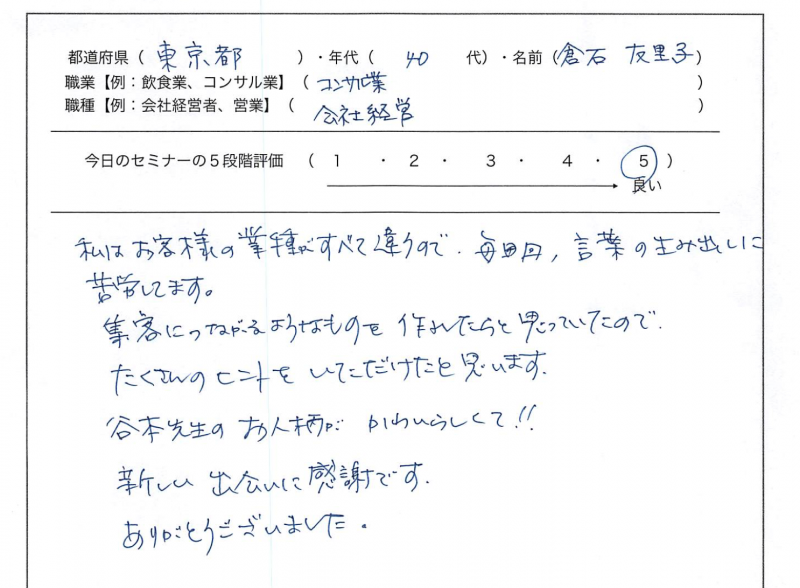 都道府県（ 東京都 ）・年代（ 40 代）・名前（倉石 友里子）
職業【例：飲食業、コンサル業】（ コンサル業 ）
職種【例：会社経営者、営業】（ 会社経営 ）
今日のセミナーの５段階評価 （ 1 ・ 2 ・ 3 ・ 4 ・ 5 ）
良い
私はお客様の業種がすべて違うので、毎回、言葉の生み出しに
苦労してます。
集客につながるようなものを作れたらと思っていたので、
たくさんのヒントをいただけたと思います。
谷本先生のお人柄が かわいらしくて!!
新しい出会いに感謝です。
ありがとうございました。